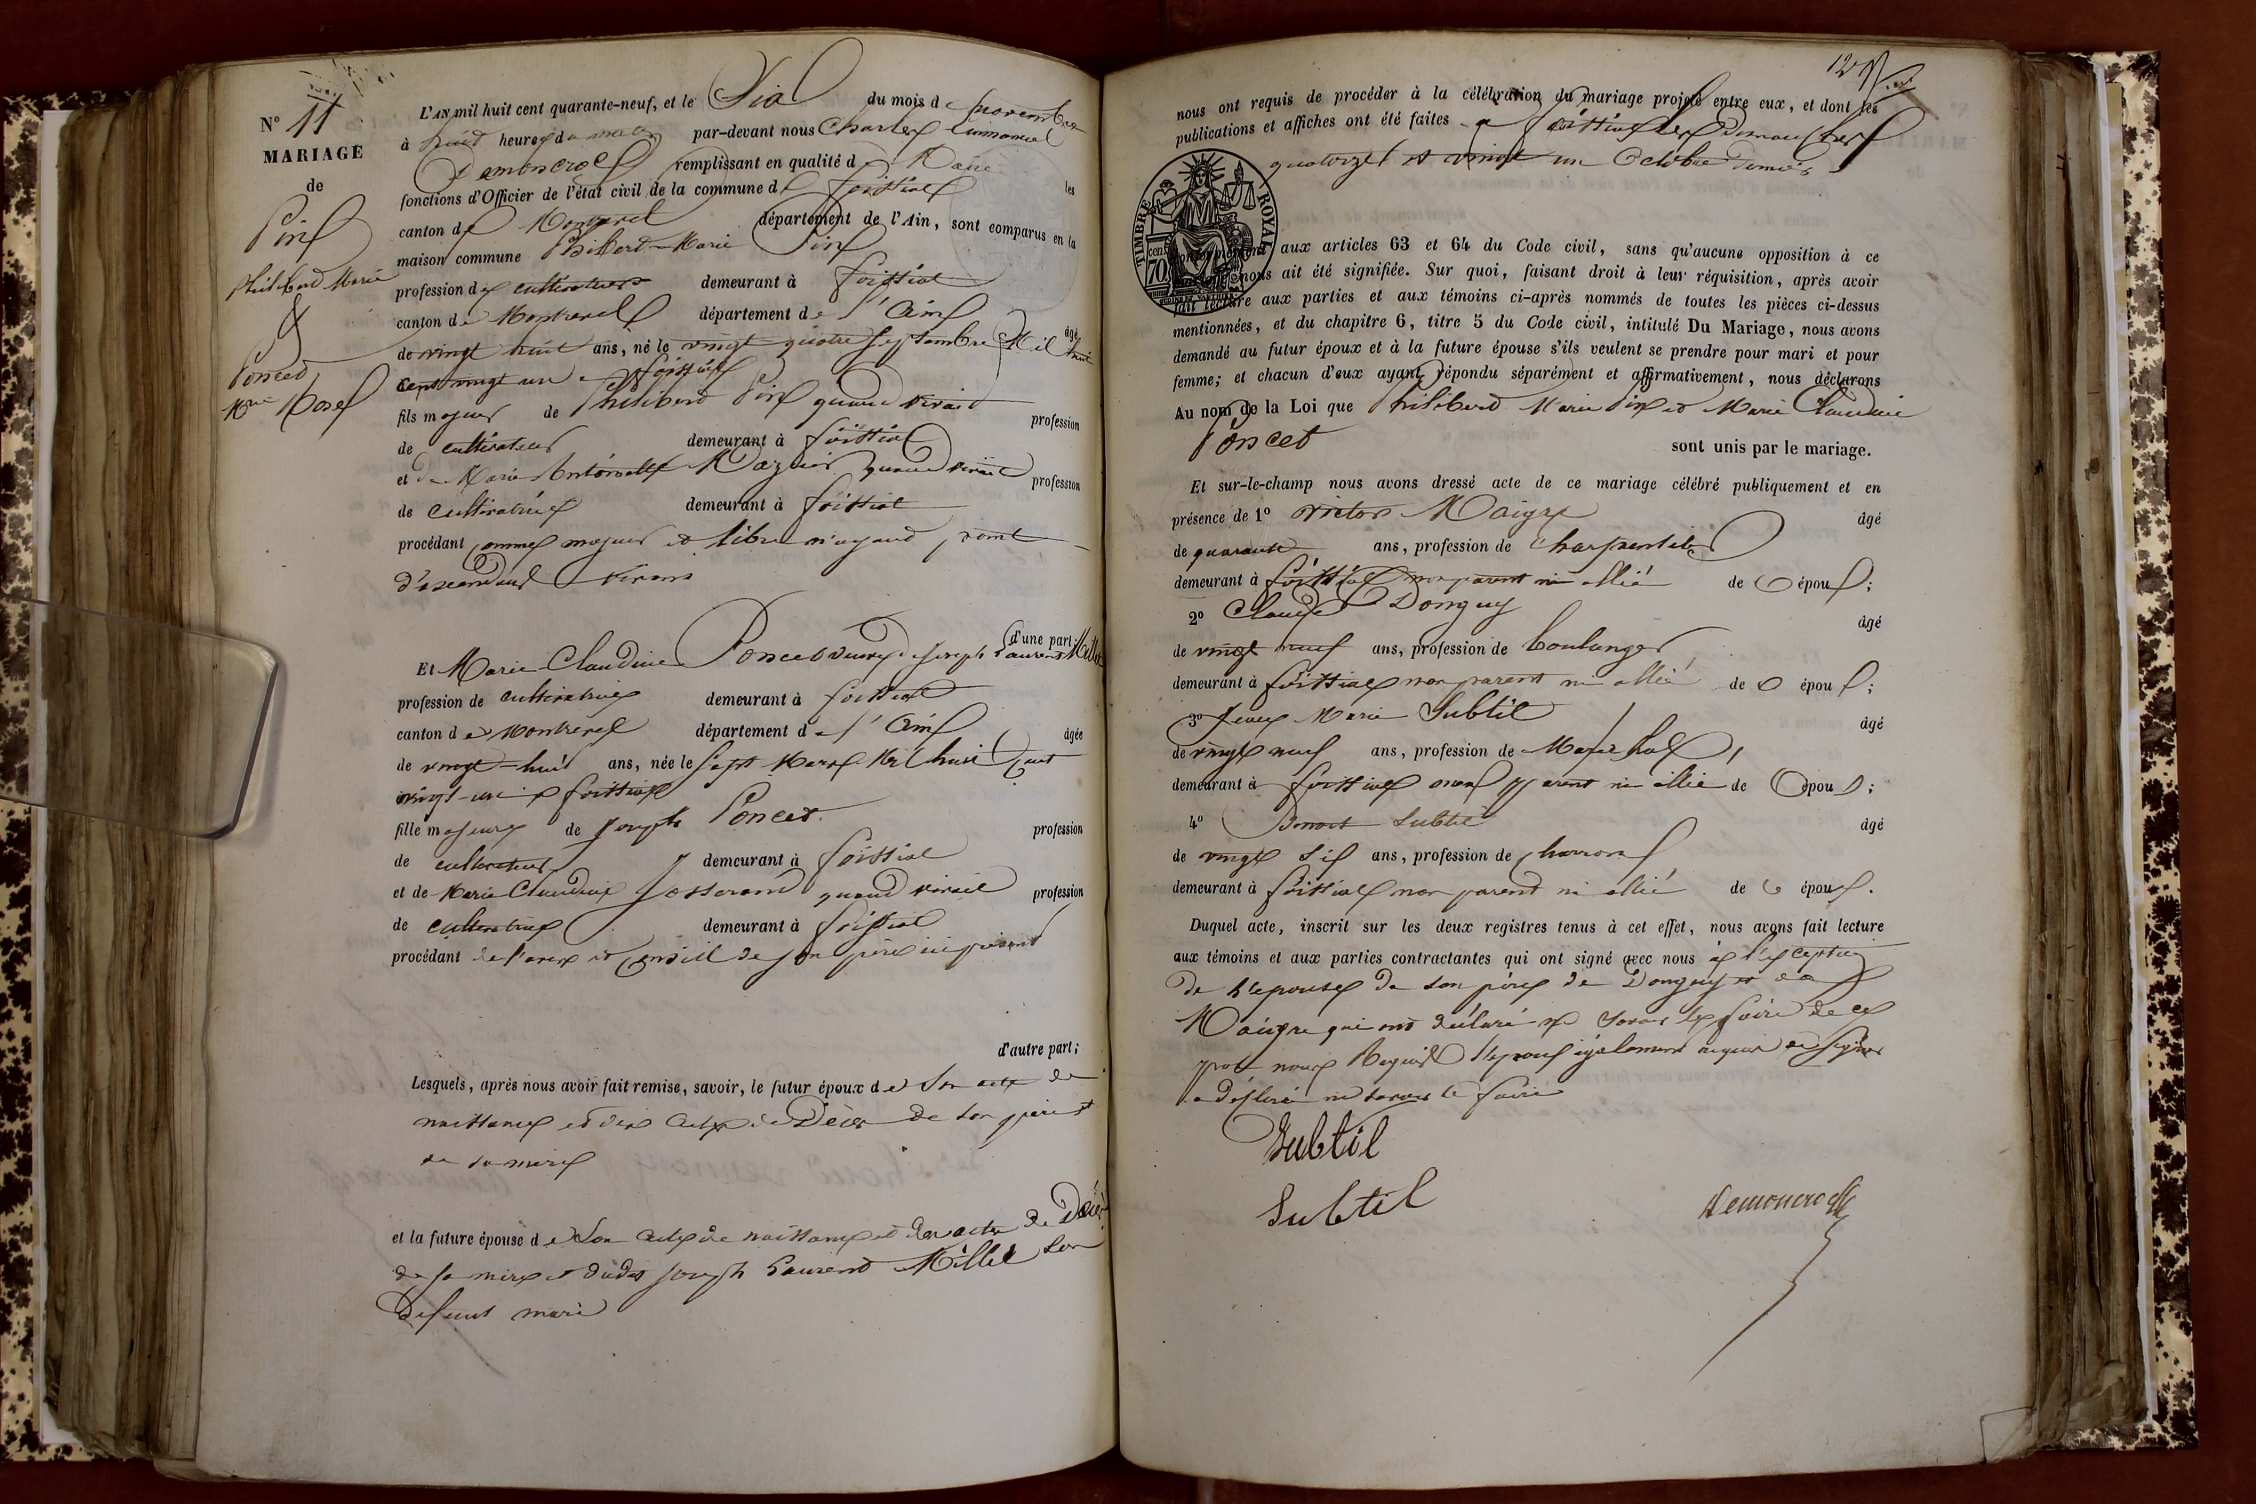 N° 11
MARIAGE
de
Pin
Philibert Marie
&
Poncet
L'AN mil huit cent quarante-neuf, et le Six du mois de novembre
à huit heures du matin par-devant nous Charles Emmanuel
Demoncroc remplissant en qualité de Maire les
fonctions d'Officier de l'état civil de la commune de foissiat
canton de Montrevel département de l'Ain, sont comparus en la
maison commune Philibert Marie Pin
profession de cultivateur demeurant à foissiat
canton de Montrevel département de l'Ain âgé
de vingt huit ans, né le vingt quatre septembre Mil huit
cent vingt un a foissiat
fils majeur de Philibert Pin quand vivait profession
de cultivateur demeurant à foissiat
et de Marie Antoinette Mazuir quand vivait profession
de cultivatrice demeurant à foissiat
procédant comme majeur et libre n'ayant point
d'ascendant vivant
d'une part;
Et Marie Claudine Poncet veuve de Joseph Laurent Millet
profession de cultivatrice demeurant à foissiat
canton de Montrevel département de l'Ain âgée
de vingt-huit ans, née le sept Mars Mil huit cent
vingt-un a foissiat
fille majeure de Joseph Poncet profession
de cultivateur demeurant à foissiat
et de Marie Claudine Josserand quand vivait profession
de cultivatrice demeurant à foissiat
procédant de l'avis et conseil de son père ici présent
d'autre part;
Lesquels, après nous avoir fait remise, savoir, le futur époux de son acte de
naissance et des actes de Décès de son père et
de sa mère
et la future épouse de son acte de naissance et des actes de Décès
de sa mère et dudit Joseph Laurent Millet son
défunt mari
nous ont requis de procéder à la célébration du mariage projeté entre eux, et dont les
publications et affiches ont été faites a foissiat les Dimanches
quatorze et vingt un Octobre dernier
TIMBRE ROYAL
70 cen
conformément aux articles 63 et 64 du Code civil, sans qu'aucune opposition à ce
mariage nous ait été signifiée. Sur quoi, faisant droit à leur réquisition, après avoir
fait lecture aux parties et aux témoins ci-après nommés de toutes les pièces ci-dessus
mentionnées, et du chapitre 6, titre 5 du Code civil, intitulé Du Mariage, nous avons
demandé au futur époux et à la future épouse s'ils veulent se prendre pour mari et pour
femme; et chacun d'eux ayant répondu séparément et affirmativement, nous déclarons
Au nom de la Loi que Philibert Marie Pin et Marie Claudine
Poncet sont unis par le mariage.
Et sur-le-champ nous avons dressé acte de ce mariage célébré publiquement et en
présence de 1° victor Maigre âgé
de quarante ans, profession de Charpentier
demeurant à foissiat non parent ni allié de époux;
2° Claude Donguy âgé
de vingt neuf ans, profession de boulanger
demeurant à foissiat non parent ni allié de époux;
3° Marie Subtil âgé
de vingt neuf ans, profession de Maréchal
demeurant à foissiat non parent ni allié de époux;
4° Benoit Subtil âgé
de vingt six ans, profession de charron
demeurant à foissiat non parent ni allié de époux.
Duquel acte, inscrit sur les deux registres tenus à cet effet, nous avons fait lecture
aux témoins et aux parties contractantes qui ont signé avec nous à l'exception
de l'épouse de son père de Donguy et de
Maigre qui ont déclaré ne savoir le faire de ce
par nous Requis l'époux également requis de signer
a déclaré ne savoir le faire
Subtil
Subtil
Demoncroc